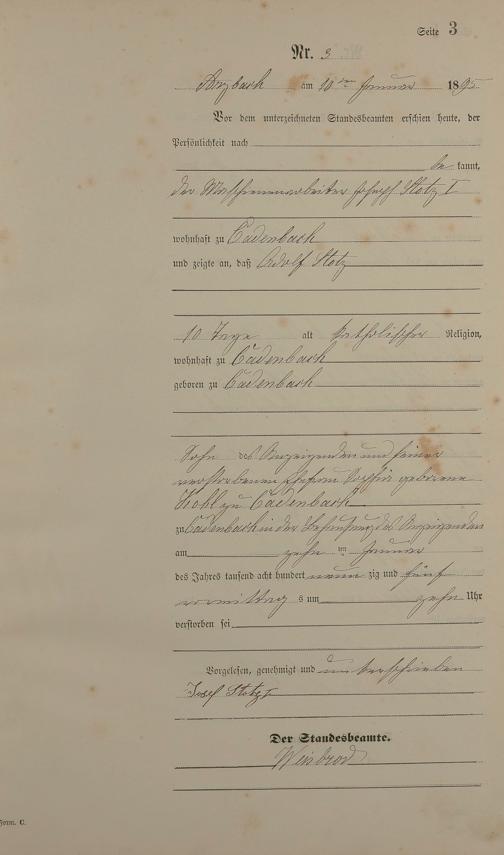 Seite 3
Nr. 3
Arzbach am 10ten Januar 1895
Vor dem unterzeichneten Standesbeamten erschien heute, der
Persönlichkeit nach
be kannt,
der Maschinenarbeiter Joseph Stotz I
wohnhaft zu Cadenbach
und zeigte an, daß Adolf Stotz
10 Tage alt katholischer Religion,
wohnhaft zu Cadenbach
geboren zu Cadenbach
Sohn des Anzeigenden und seiner
verstorbenen Ehefrau Sophie geborene
zu Cadenbach
zu Cadenbach in der Behausung des Anzeigenden
am zehn ten Januar
des Jahres tausend acht hundert neun zig und fünf
vormittag s um zehn Uhr
verstorben sei
Vorgelesen, genehmigt und unterschrieben
Josef Stotz I
Der Standesbeamte.
Weisbrod
Form. C.